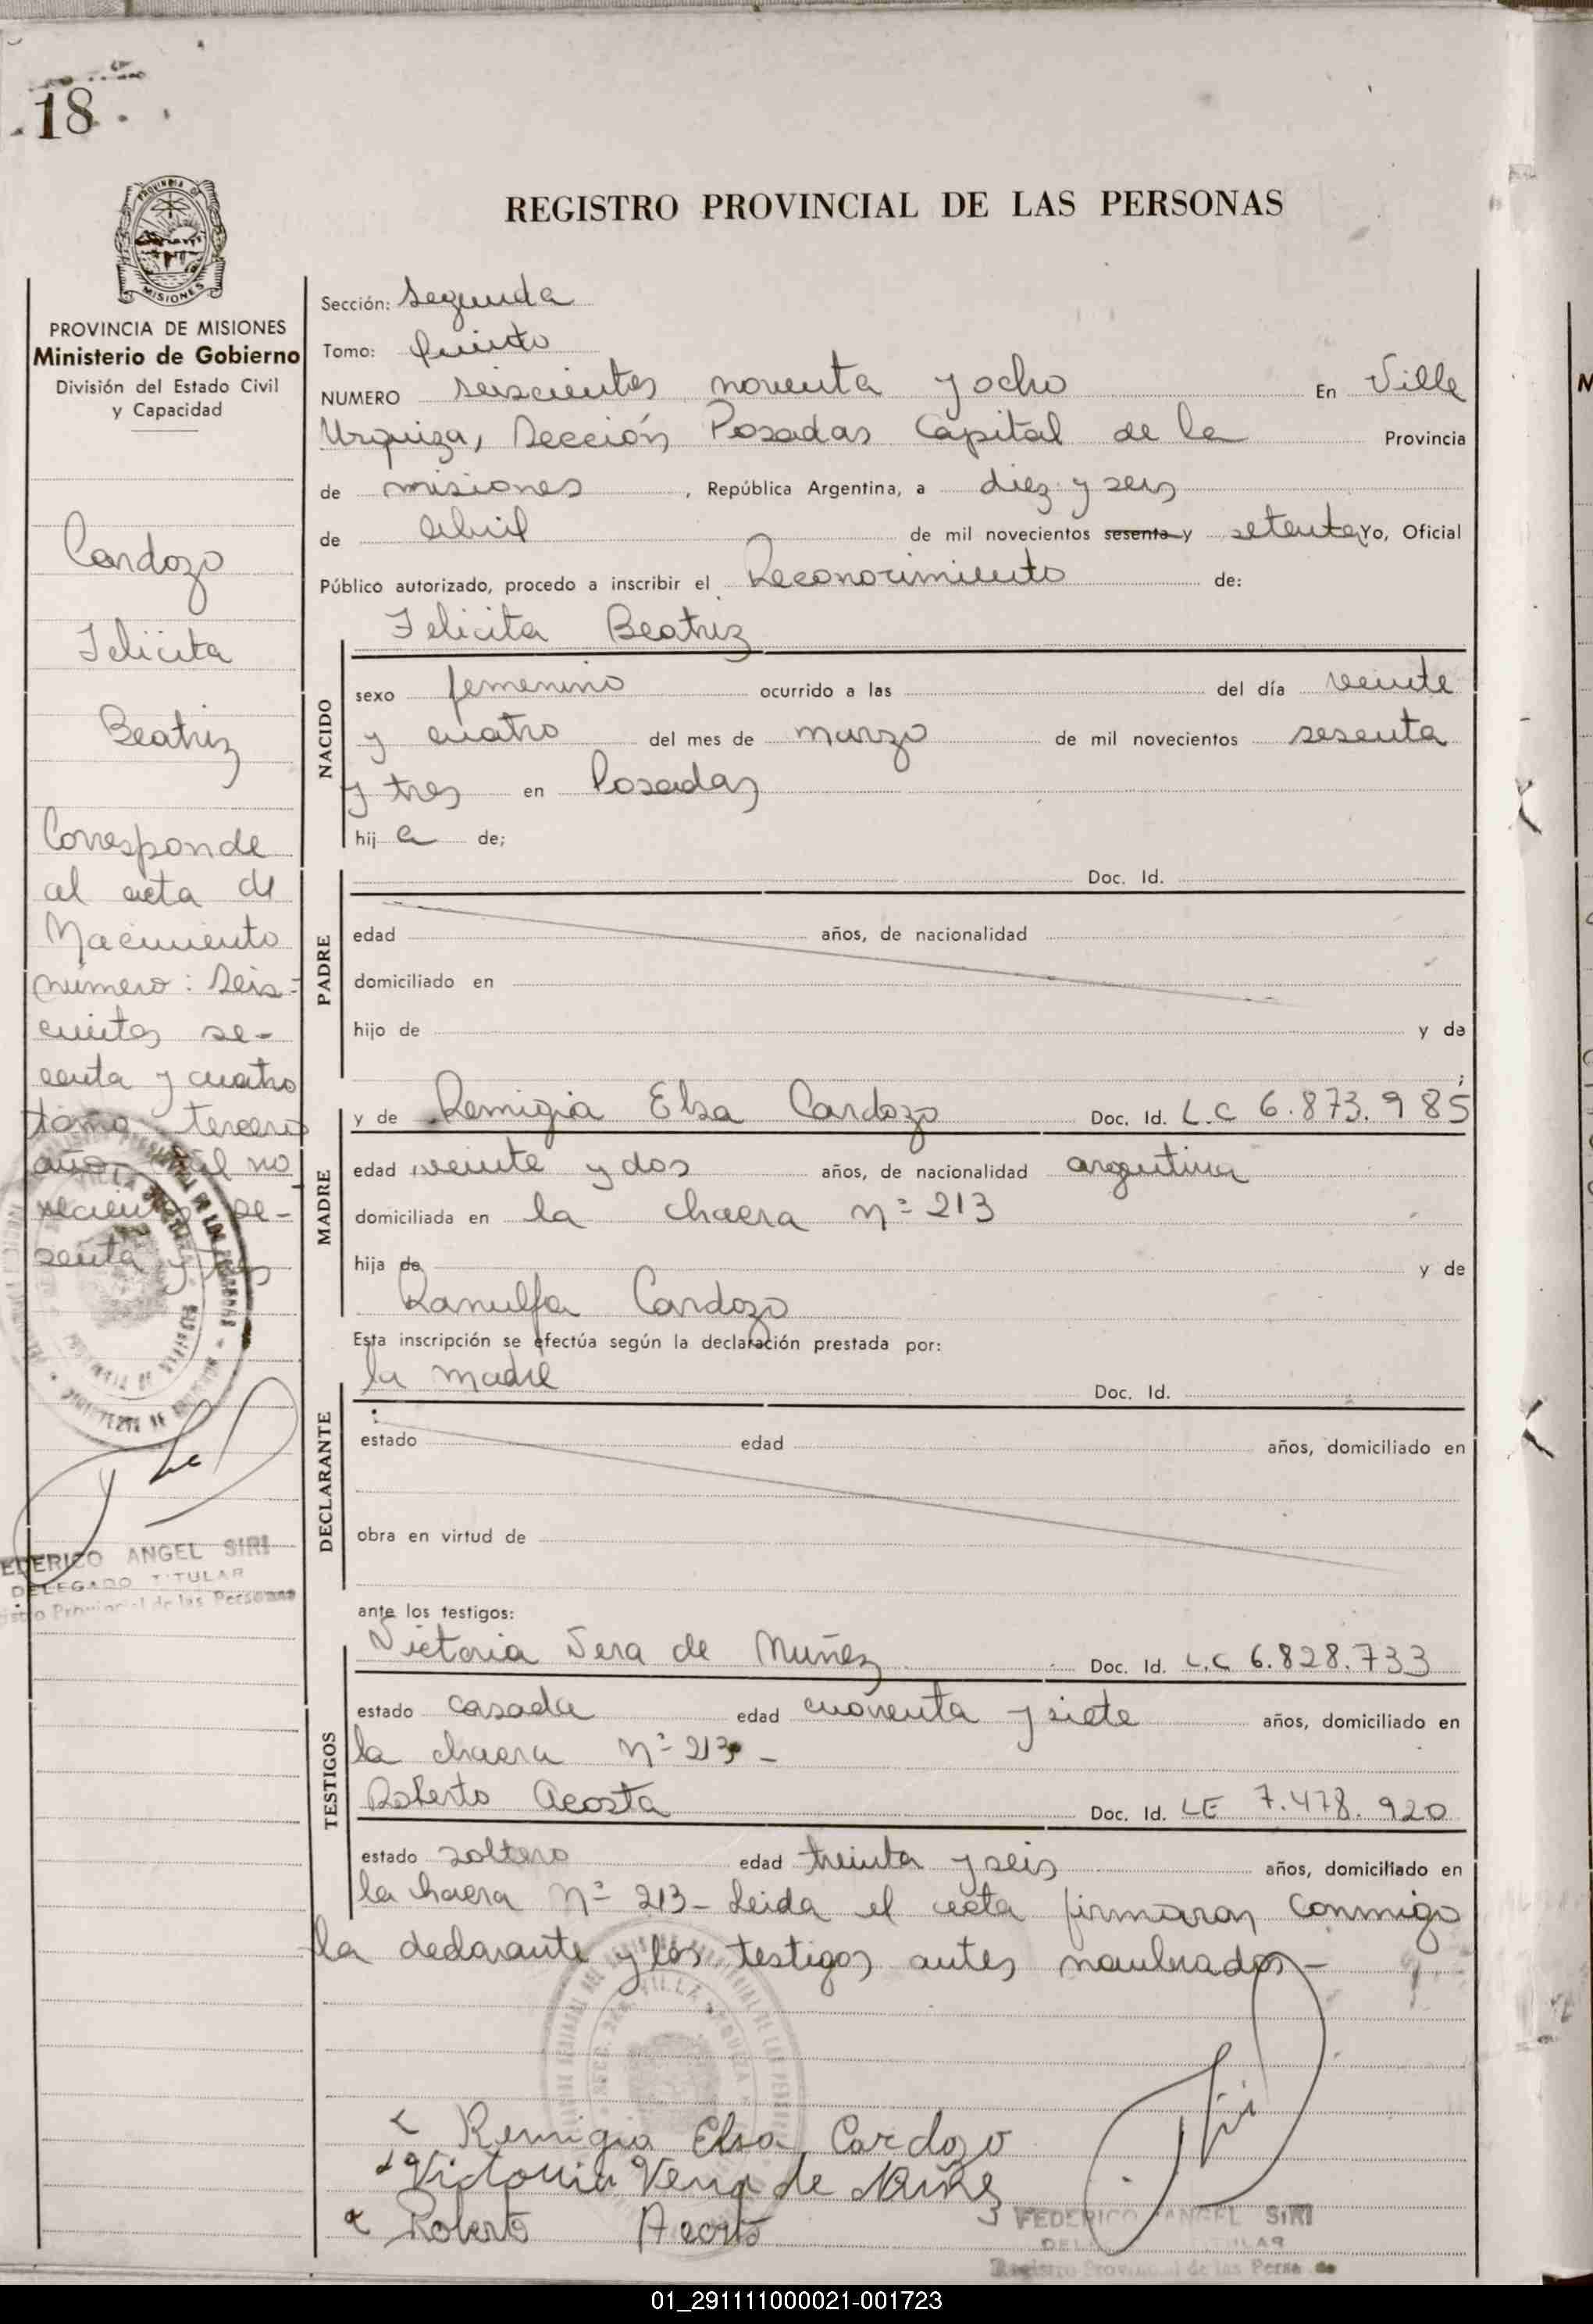 18
PROVINCIA DE
MISIONES
REGISTRO PROVINCIAL DE LAS PERSONAS
PROVINCIA DE MISIONES
Ministerio de Gobierno
División del Estado Civil
y Capacidad
Cardozo
Felicita
Beatriz
Corresponde
al acta de
Nacimiento
número: Seis-
cientos se-
senta y cuatro
tomo tercero
año mil no
vecientos se-
senta y tres
FEDERICO ANGEL SIRI
DELEGADO TITULAR
Registro Provincial de las Personas
Sección: Segunda
Tomo: Quinto
NUMERO seiscientos noventa y ocho En Villa
Urquiza, Sección Posadas Capital de la Provincia
de misiones, República Argentina, a diez y seis
de abril de mil novecientos sesenta y setenta Yo, Oficial
Público autorizado, procedo a inscribir el Reconocimiento de:
Felicita Beatriz
NACIDO
sexo femenino ocurrido a las del día veinte
y cuatro del mes de marzo de mil novecientos sesenta
y tres en Posadas
hij a de;
Doc. Id.
PADRE
edad años, de nacionalidad
domiciliado en
hijo de y de
;
y de Remigia Elsa Cardozo Doc. Id. L.C 6.873.985
MADRE
edad veinte y dos años, de nacionalidad argentina
domiciliada en la chacra nº 213
hija de y de
Ranulfa Cardozo
Esta inscripción se efectúa según la declaración prestada por:
la madre Doc. Id.
DECLARANTE
estado edad años, domiciliado en
obra en virtud de
ante los testigos:
Victoria Vera de Nuñez Doc. Id. L.C 6.828.733
TESTIGOS
estado casada edad cuarenta y siete años, domiciliado en
la chacra nº 213 -
Roberto Acosta Doc. Id. LE 7.478.920
estado soltero edad treinta y seis años, domiciliado en
la chacra nº 213 - Leida el acta firmaron conmigo
la declarante y los testigos antes nombrados -
Remigia Elsa Cardozo
Victoria Vera de Nuñez
Roberto Acosta
FEDERICO ANGEL SIRI
DELEGADO TITULAR
Registro Provincial de las Personas
01_291111000021-001723